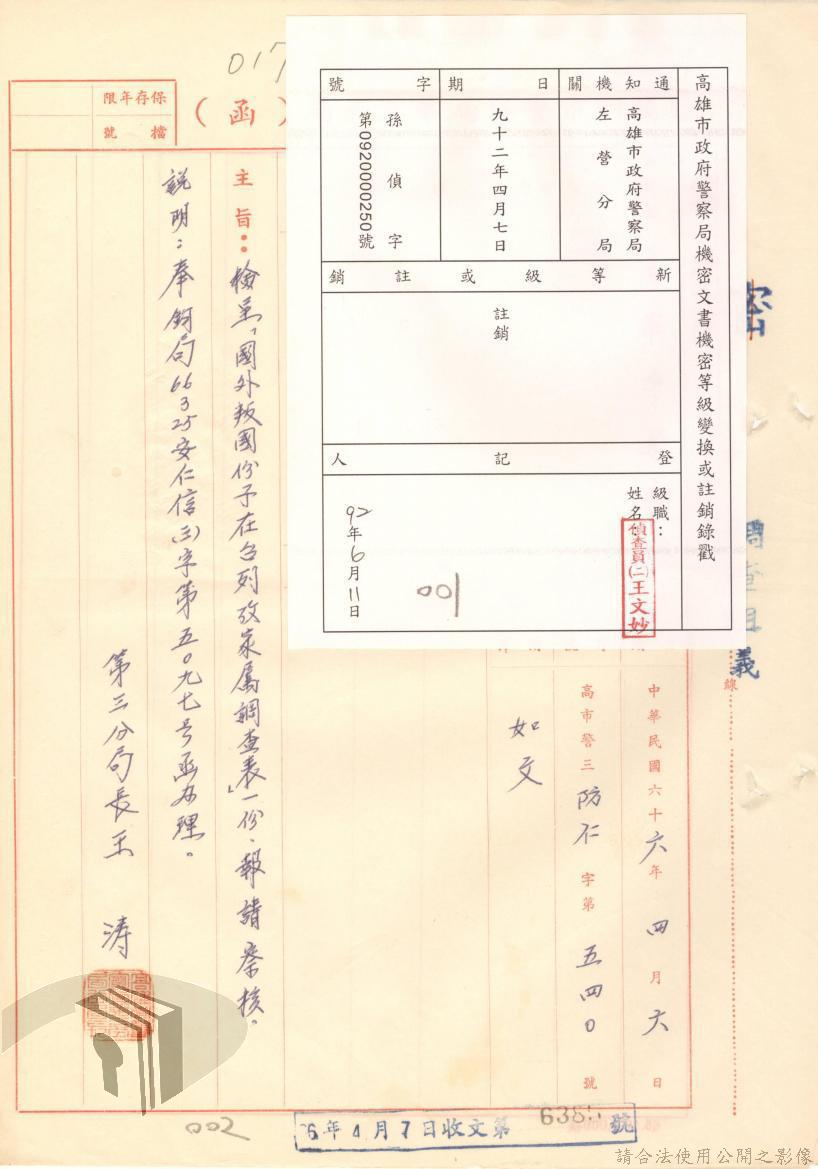 017
保存年限
檔號
(函)
高雄市政府警察局機密文書機密等級變換或註銷錄戳
通知機關
高雄市政府警察局
左營分局
日期
九十二年四月七日
字號
孫偵字
第0920000250號
新等級或註銷
註銷
登記人
級職：
姓名：
偵查員(二)王文妙
92年6月11日
001
密
調查
義
線
中華民國六十六年四月六日
高市警三防仁字第五四0號
如文
主旨：檢呈「國外叛國份子在台列攷家屬調查表」一份，報請察核。
說明：奉鈞局66 3 25安仁信(三)字第五0九七号函办理。
第三分局長王濤
002
6年4月7日收文第6385號
請合法使用公開之影像